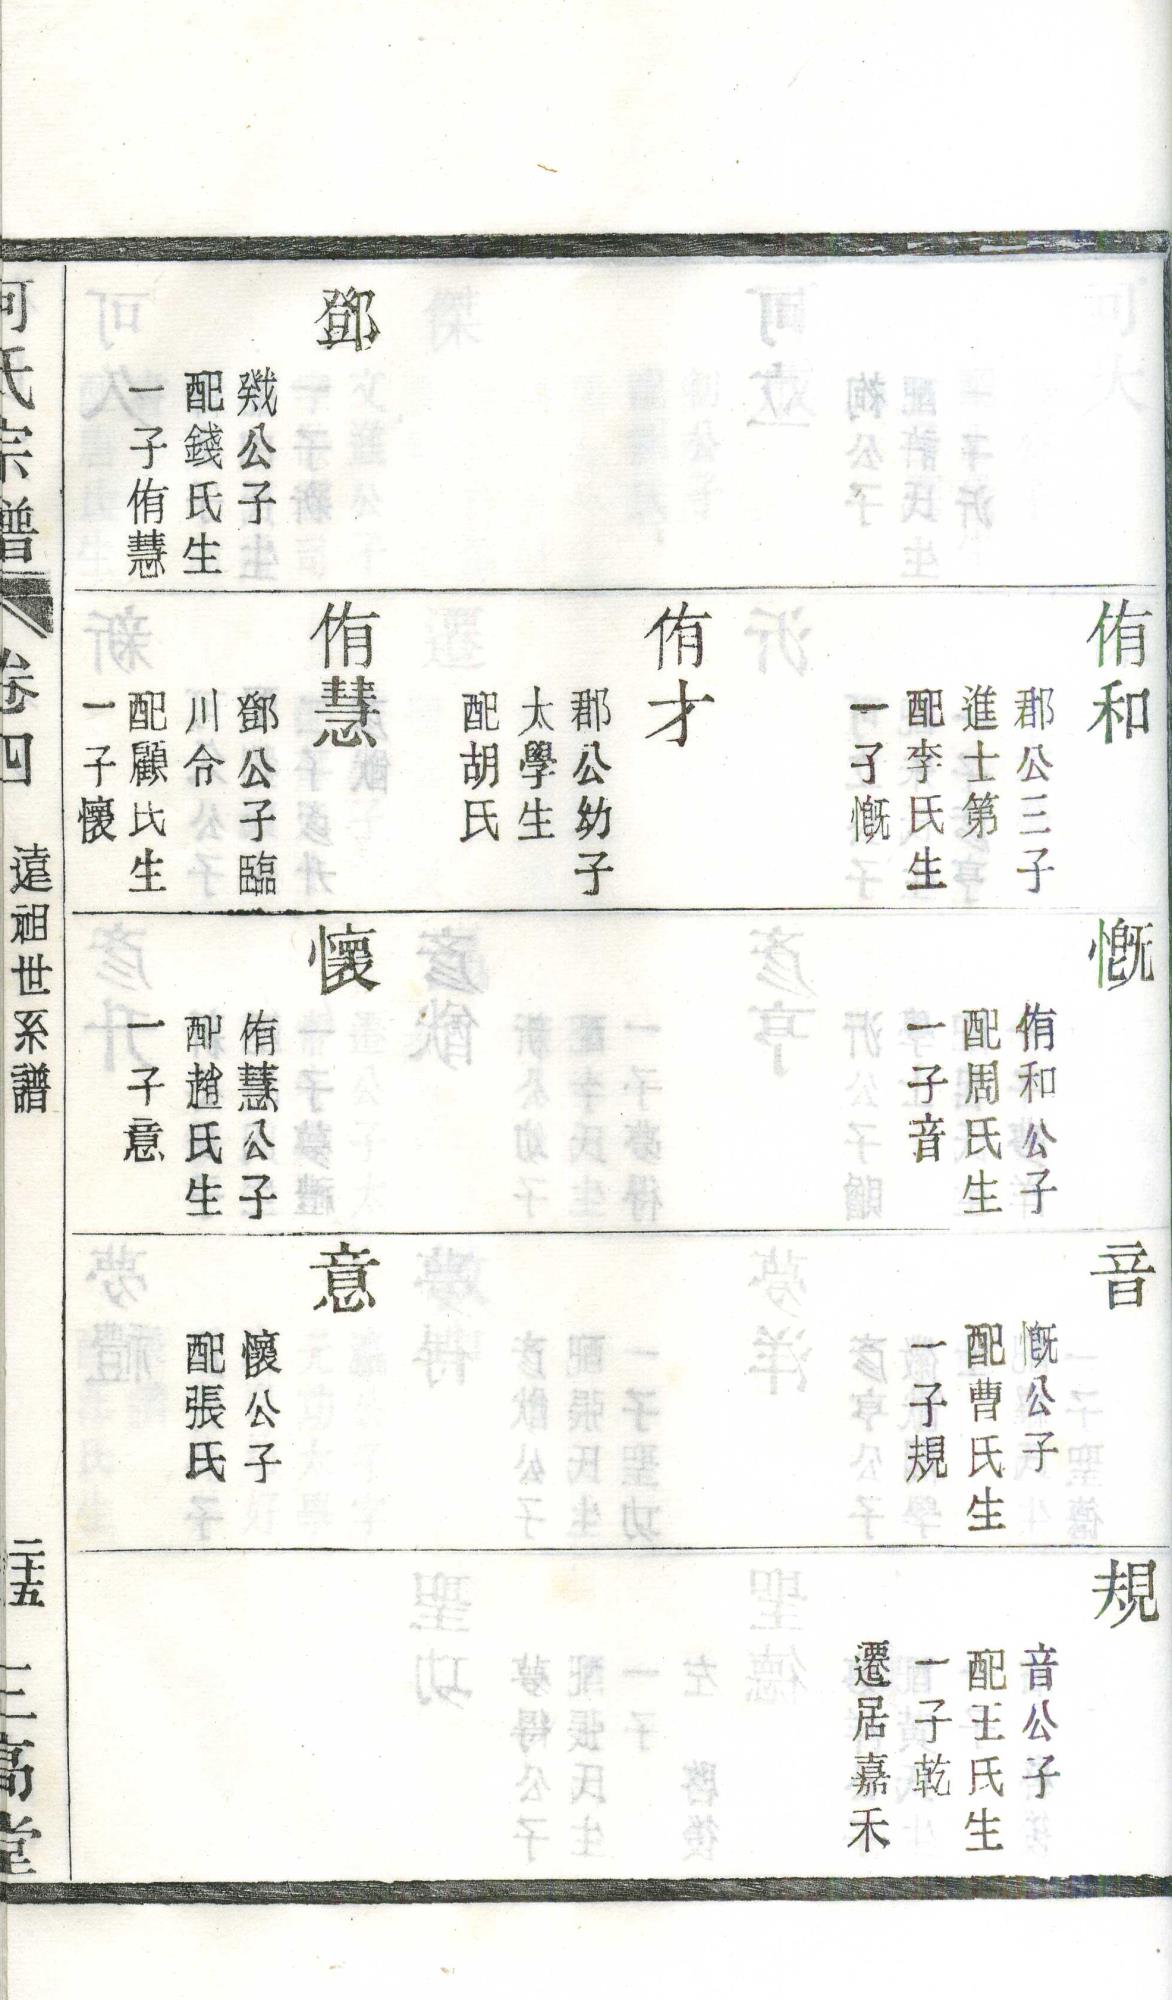 鄧
戣公子
配錢氏生
一子侑慧
侑和
郡公三子
進士第
配李氏生
一子慨
侑才
郡公幼子
太學生
配胡氏
侑慧
鄧公子臨
川令
配顧氏生
一子懷
慨
侑和公子
配周氏生
一子音
懷
侑慧公子
配趙氏生
一子意
音
慨公子
配曹氏生
一子規
意
懷公子
配張氏
規
音公子
配王氏生
一子乾
遷居嘉禾
何氏宗譜
卷四
遠祖世系譜
二十五
三高堂